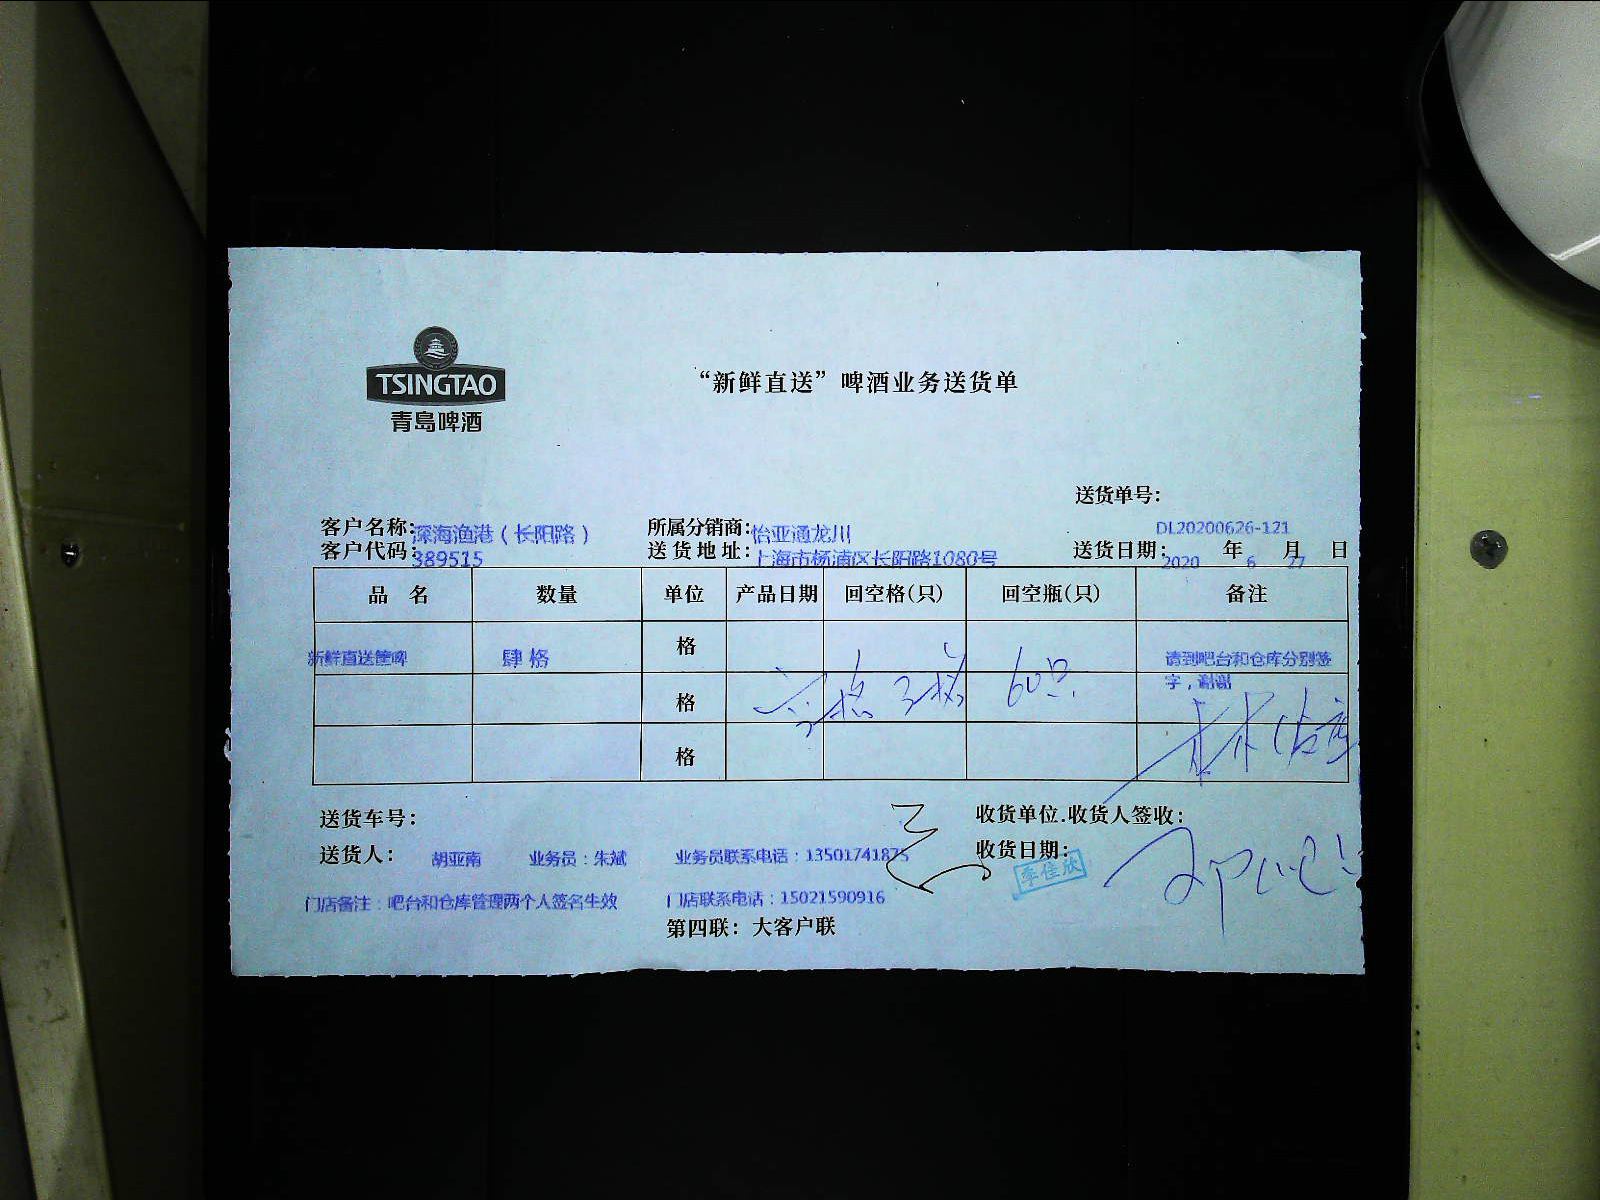 TSINGTAO
青島啤酒
“新鲜直送”啤酒业务送货单
送货单号：
DL20200626-121
客户名称：深海渔港（长阳路） 所属分销商：怡亚通龙川
客户代码：389515 送货地址：上海市杨浦区长阳路1080号 送货日期：2020年6月27日
品 名 数量 单位 产品日期 回空格(只) 回空瓶(只) 备注
新鲜直送筐啤 肆格 格 请到吧台和仓库分别签
字，谢谢
格 3格 60只
格
送货车号： 收货单位.收货人签收：
送货人： 胡亚南 业务员：朱斌 业务员联系电话：13501741875 收货日期：
李佳欣
门店备注：吧台和仓库管理两个人签名生效 门店联系电话：15021590916
第四联：大客户联